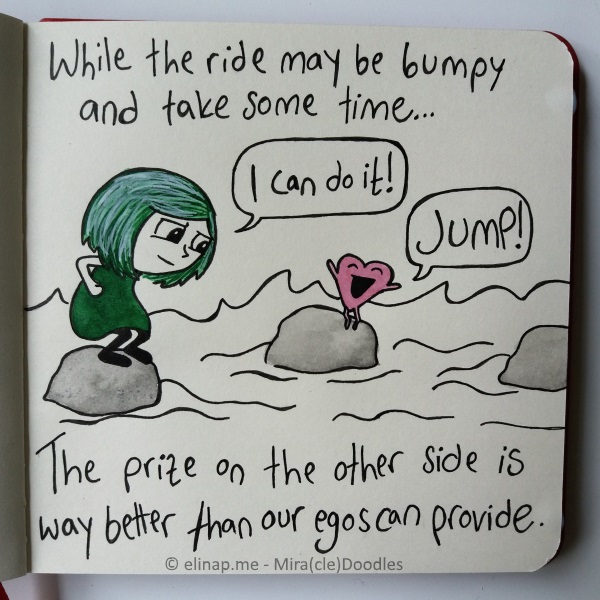 While the ride may be bumpy
and take some time...
I can do it!
Jump!
The prize on the other side is
way better than our egos can provide.
© elinap.me - Mira(cle)Doodles